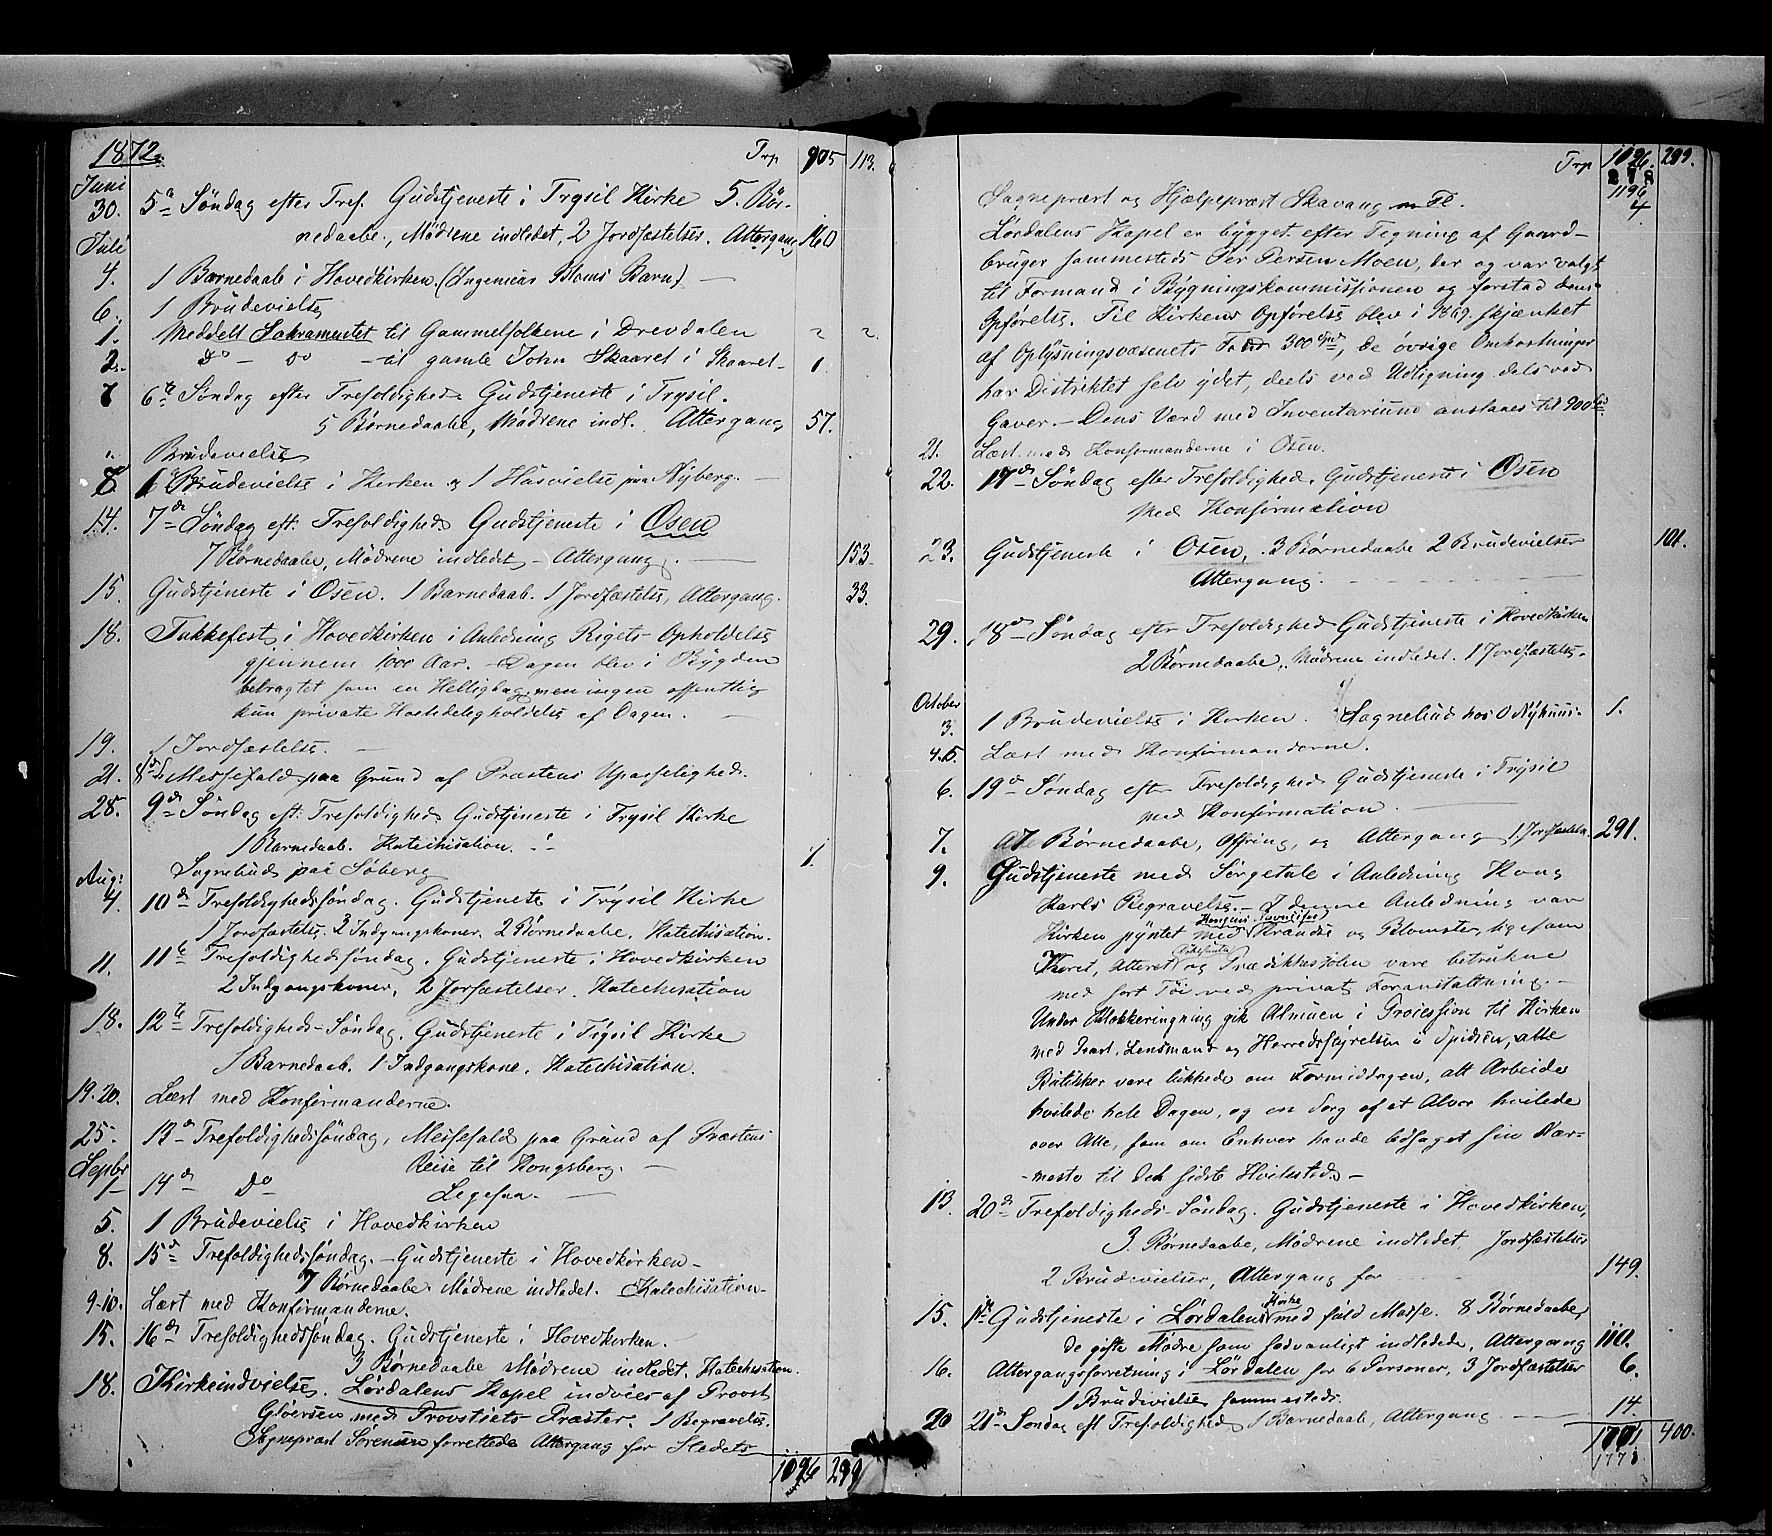 1872. Trp 905 113.
Juni
30. 5te Søndag efter Tref. Gudstjeneste i Trysil Kirke 5. Bør-
nedaabe, Mødrene indledet, 2 Jordfæstelser. Altergang 160
Juli
4. 1 Barnedaab i Hovedkirken. (Ingeniør Bloms Barn) —
6. 1 Brudevielse
1. Meddelt Sakramentet til Gammelfolkene i Drevdalen 2 2.
2. Do — Do — til gamle John Skaaret i Skaaret. 1.
7 6te Søndag efter Trefoldighed Gudstjeneste i Trysil.
5 Børnedaabe, Mødrene indl. Altergang 57.
" Brudevielse
8. 1 Brudevielse i Kirken og 1 Husvielse paa Nyberg. —
14. 7de Søndag eft. Trefoldighed Gudstjeneste i Osen
7 Børnedaabe, Mødrene indledet — Altergang. — 153.
15. Gudstjeneste i Osen. 1 Barnedaab. 1 Jordfæstelse, Altergang. 33.
18. Takkefest i Hovedkirken i Anledning Rigets Opholdelse
gjennem 1000 Aar. — Dagen blev i Bygden
betragtet som en Helligdag, men ingen offentlig
kun private Høitideligholdelse af Dagen. —
19. 1 Jordfæstelse. —
21. 8de S. Messefald paa Grund af Præstens Upasselighed.
28. 9de Søndag eft. Trefoldighed Gudstjeneste i Trysil Kirke
1 Barnedaab. Katechisation.
Sognebud paa Søberg 1.
Aug:
4. 10de Trefoldighedssøndag. Gudstjeneste i Trysil Kirke
1 Jordfæstelse. 3 Indgangskoner. 2 Børnedaabe. Katechisation.
11. 11te Trefoldighedssøndag. Gudstjeneste i Hovedkirken
2 Indgangskoner, 2 Jorfæstelser. Katechisation
18. 12te Trefoldigheds-Søndag. Gudstjeneste i Trysil Kirke
1 Barnedaab. 1 Indgangskone. Katechisation.
19. 20. Læst med Konfirmanderne.
25. 13de Trefoldighedssøndag, Messefald paa Grund af Præstens
Reise til Kongsberg. —
Septbr
1 14de Do Ligesaa. —
5. 1 Brudevielse i Hovedkirken
8. 15de Trefoldighedssøndag. — Gudstjeneste i Hovedkirken —
7 Børnedaabe. Mødrene indledet. Katechisation.
9-10. Læst med Konfirmanderne.
15. 16de Trefoldighedssøndag. Gudstjeneste i Hovedkirken.
3 Børnedaabe Mødrene indledet. Katechisation.
18. Kirkeindvielse. Lørdalens Kapel indvies af Provst
Gløersen med Provstiets Præster. 1 Begravelse.
Sognepræst Sørensen forrettede Altergang for Stedets
1096 299
Trp 1096. 299.
278
1196
Sognepræst og Hjælpepræst Skavang m Fl. 4
Lørdalens Kapel er bygget efter Tegning af Gaard-
bruger sammesteds Per Persen Moen, der og var valgt
til Formand i Bygningskommissionen og forstod dens
Opførelse. Til Kirkens Opførelse blev i 1869. skjænket
af Oplysningsvæsenets Fond 300 Spd, de øvrige Omkostninger
har Distriktet selv ydet, deels ved Udligning dels ved
Gaver. — Dens Værd med Inventarium anslaaes til 900 Spd
21. Læst med Konfirmanderne i Osen.
22. 17de Søndag efter Trefoldighed. Gudstjeneste i Osen
med Konfirmation
23. Gudstjeneste i Osen, 3 Børnedaabe 2 Brudevielser 101.
Altergang. —
29. 18de Søndag efter Trefoldighed Gudstjeneste i Hovedkirken
2 Børnedaabe, Mødrene indledet. 1 Jordfæstelse.
October
3. 1 Brudevielse i Kirken. Sognebud hos O Nyhuus. 1.
4. 5. Læst med Konfirmanderne.
6. 19de Søndag efter Trefoldighed Gudstjeneste i Trysil
med Konfirmation. —
7. Børnedaabe, Offring, og Altergang 1 Jordfæstelse. 291.
9. Gudstjeneste med Sørgetale i Anledning Kong
Karls Begravelse. — I denne Anledning var
Kongens Navnciffer
Kirken pyntet med Krandse og Blomster, ligesom
Koret, Alteret og Prædikestolen vare betrukne
med sort Tøi ved privat Foranstaltning. —
Under Klokkeringning gik Almuen i Procession til Kirken
med Præst, Lensmand og Herredsstyrelsen i Spidsen, alle
Butikker vare lukkede om Formiddagen, alt Arbeide
hvilede hele Dagen, og en Sorg af et Alvor hvilede
over Alle, som om Enhver havde ledsaget sin Nær-
meste til det sidste Hvilested. —
13. 20de Trefoldigheds-Søndag. Gudstjeneste i Hovedkirken,
3. Børnedaabe, Mødrene indledet. Jordfæstelse
2 Brudevielser, Altergang for 149.
Kirke
15. Gudstjeneste i Lørdalens med fuld Messe. 8 Børnedaabe,
de gifte Mødre som sedvanligt indledede, Altergang 110.
16. Altergangsforretning i Lørdalen for 6 Personer, 3 Jordfæstelser 6.
1 Brudevielse sammesteds.
20 21de Søndag eft Trefoldighed 1 Barnedaab, Altergang — 14.
400.
1778